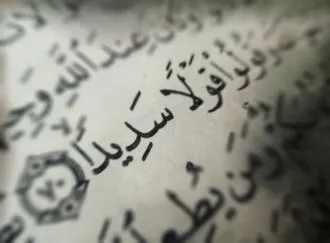 وَكَانَ عِندَ ٱللَّهِ وَجِيهًا
وَقُولُوا۟ قَوْلًا سَدِيدًا ٧٠
وَمَن يُطِعِ